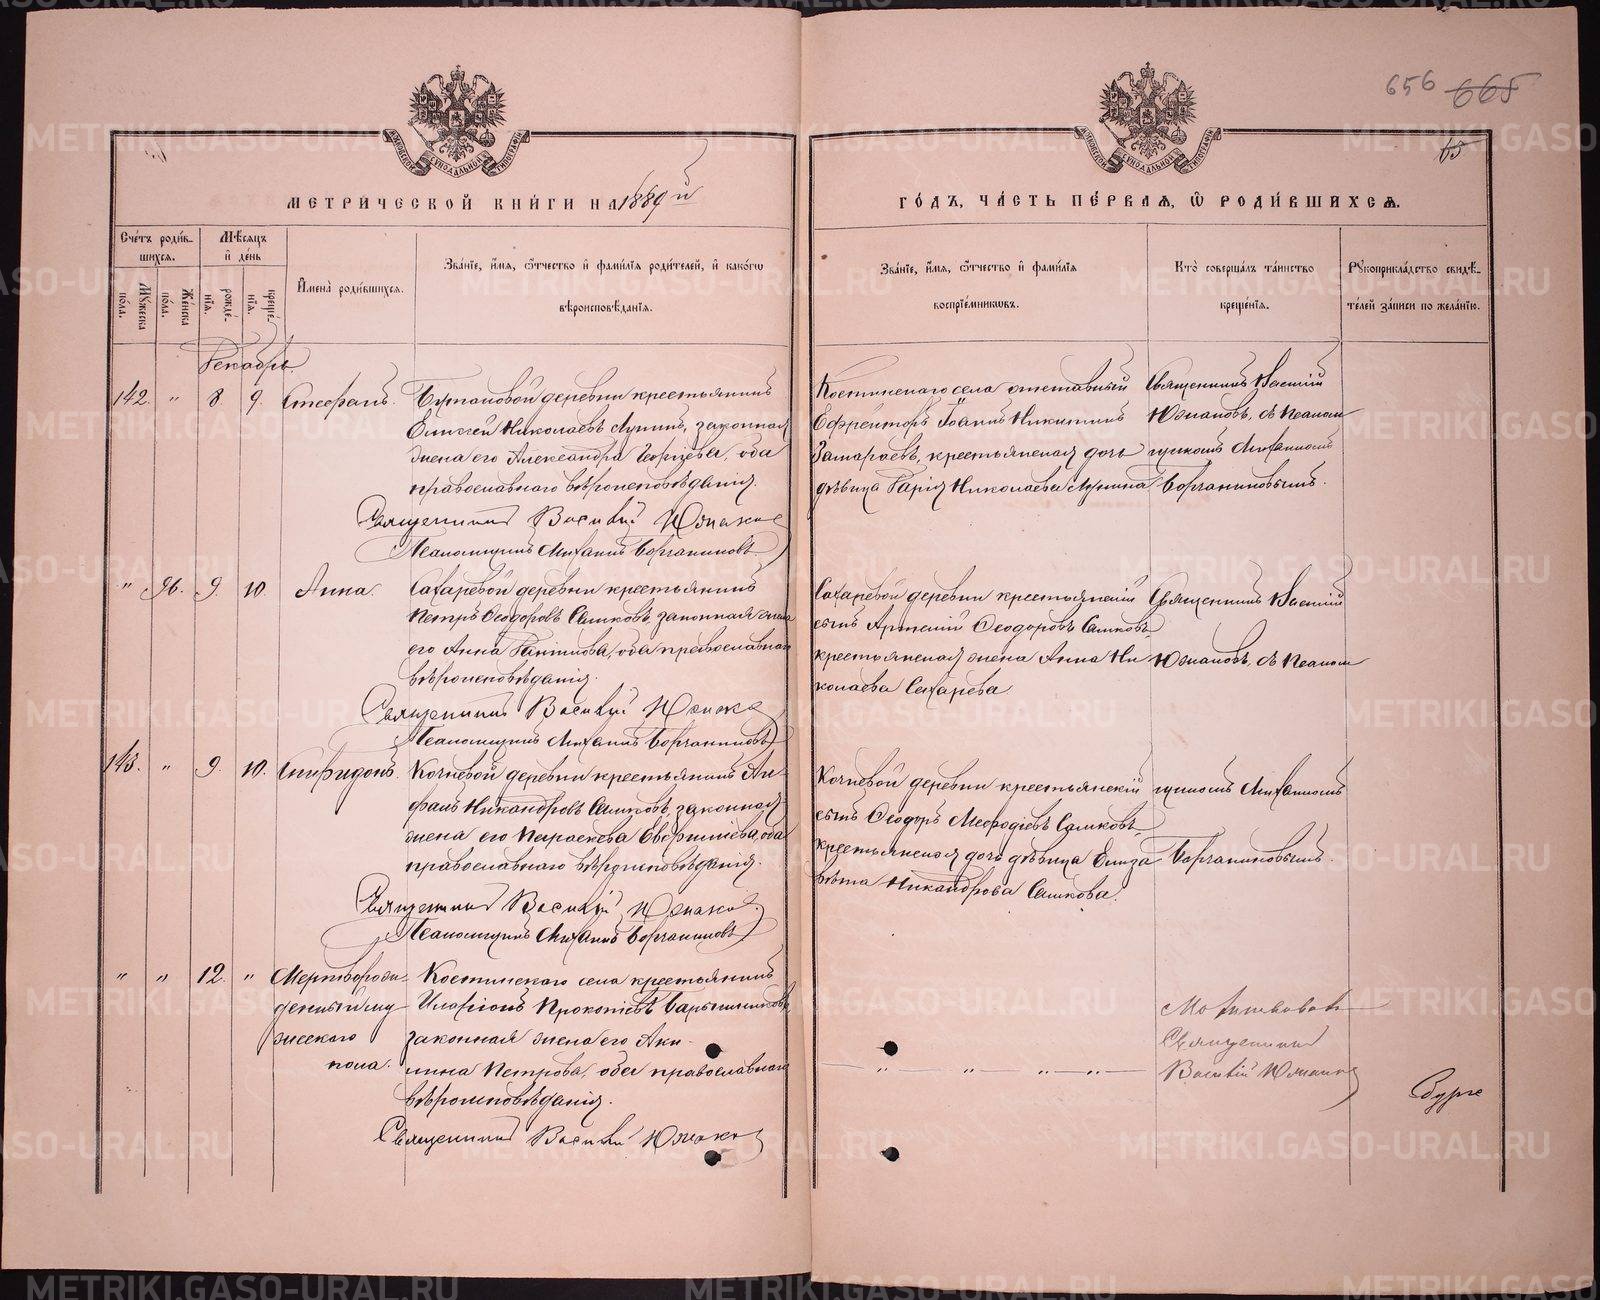 656 665
65
МЕТРИЧЕСКОЙ КНИГИ НА 1889 й
ГОДЪ, ЧАСТЬ ПЕРВАЯ, Ѡ РОДИВШИХСЯ.
Счетъ родив-
шихся.
Мѣсяцъ
и день
Мужеска
пола.
Женска
пола.
рожде-
нія.
креще-
нія.
Имена родившихся.
Званіе, имя, ѿчество и фамилія родителей, и какогѡ
вѣроисповѣданія.
Званіе, имя, ѿчество и фамилія
воспріемникѡвъ.
Кто совершалъ таинство
крещенія.
Рукоприкладство свидѣ-
телей записи по желанію.
Декабрь
142. " 8. 9. Стефанъ.
деревни крестьянинъ
Николаевъ Лунинъ, законная
жена его Александра Георгіева, оба
православнаго вѣроисповѣданія.
Священникъ Василій Южаков
Псаломщикъ Михаилъ Борчаниновъ
Костинскаго села отставный
Ефрейторъ Іоаннъ Никитинъ
Замараевъ, крестьянская дочь
дѣвица Николаева Лунина
Священникъ Василій
Южаковъ, съ псалом
щикомъ Михаиломъ
Борчаниновымъ.
" 96. 9. 10. Анна.
Сохаревой деревни крестьянинъ
Петръ Ѳеодоровъ Самковъ, законная жена
его Анна, оба православнаго
вѣроисповѣданія.
Священникъ Василій Южаков
Псаломщикъ Михаилъ Борчаниновъ
Сохаревой деревни крестьянскій
сынъ Арсеній Ѳеодоровъ Самковъ,
крестьянская жена Анна Ни
колаева Сохарева
Священникъ Василій
Южаковъ, съ псалом
143. " 9. 10. Спиридонъ.
Кочневой деревни крестьянинъ Ага-
фонъ Никандровъ Самковъ, законная
жена его Параскева, оба
православнаго вѣроисповѣданія.
Священникъ Василій Южаков
Псаломщикъ Михаилъ Борчаниновъ
Кочневой деревни крестьянскій
сынъ Ѳеодоръ Меѳодіевъ Самковъ,
крестьянская дочь дѣвица Елиза
вѣта Никандрова Самкова.
щикомъ Михаиломъ
Борчаниновымъ.
" " 12. " Мертворож-
денный му
жескаго
пола.
Костинскаго села крестьянинъ
Иларіонъ Прокопіевъ Барышниковъ,
законная жена его Аки-
лина Петрова, оба православнаго
вѣроисповѣданія.
Священникъ Василій Южаков
" " " "
Молитвовалъ
Священникъ
Василій Южаков